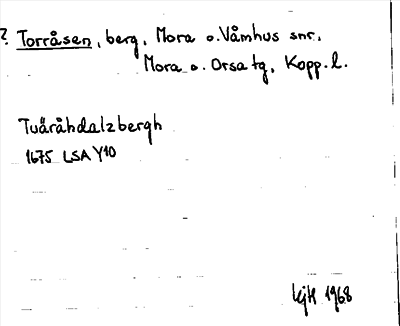 ? Torråsen, berg, Mora o. Våmhus snr,
Mora o. Orsa tg, Kopp. l.
Tuäråhdalzbergh
1675 LSA Y10
KjH 1968